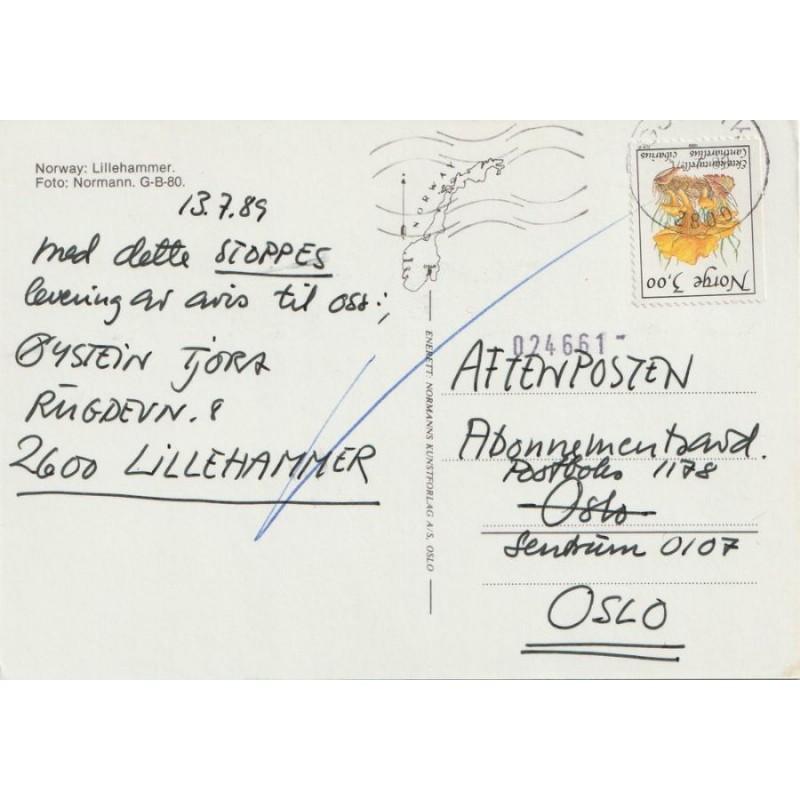 Norway: Lillehammer.
Foto: Normann. G-B-80.
13.7.89
med dette STOPPES
levering av avis til oss:,
ØYSTEIN TJORA
RUGDEVN. 8
2600 LILLEHAMMER
NORWAY
ENERETT: NORMANNS KUNSTFORLAG A/S, OSLO
Norge 3,00
Cantharellus
cibarius
024661-
AFTENPOSTEN
Abonnementsavd.
Postboks 1178
Oslo
Sentrum 0107
OSLO